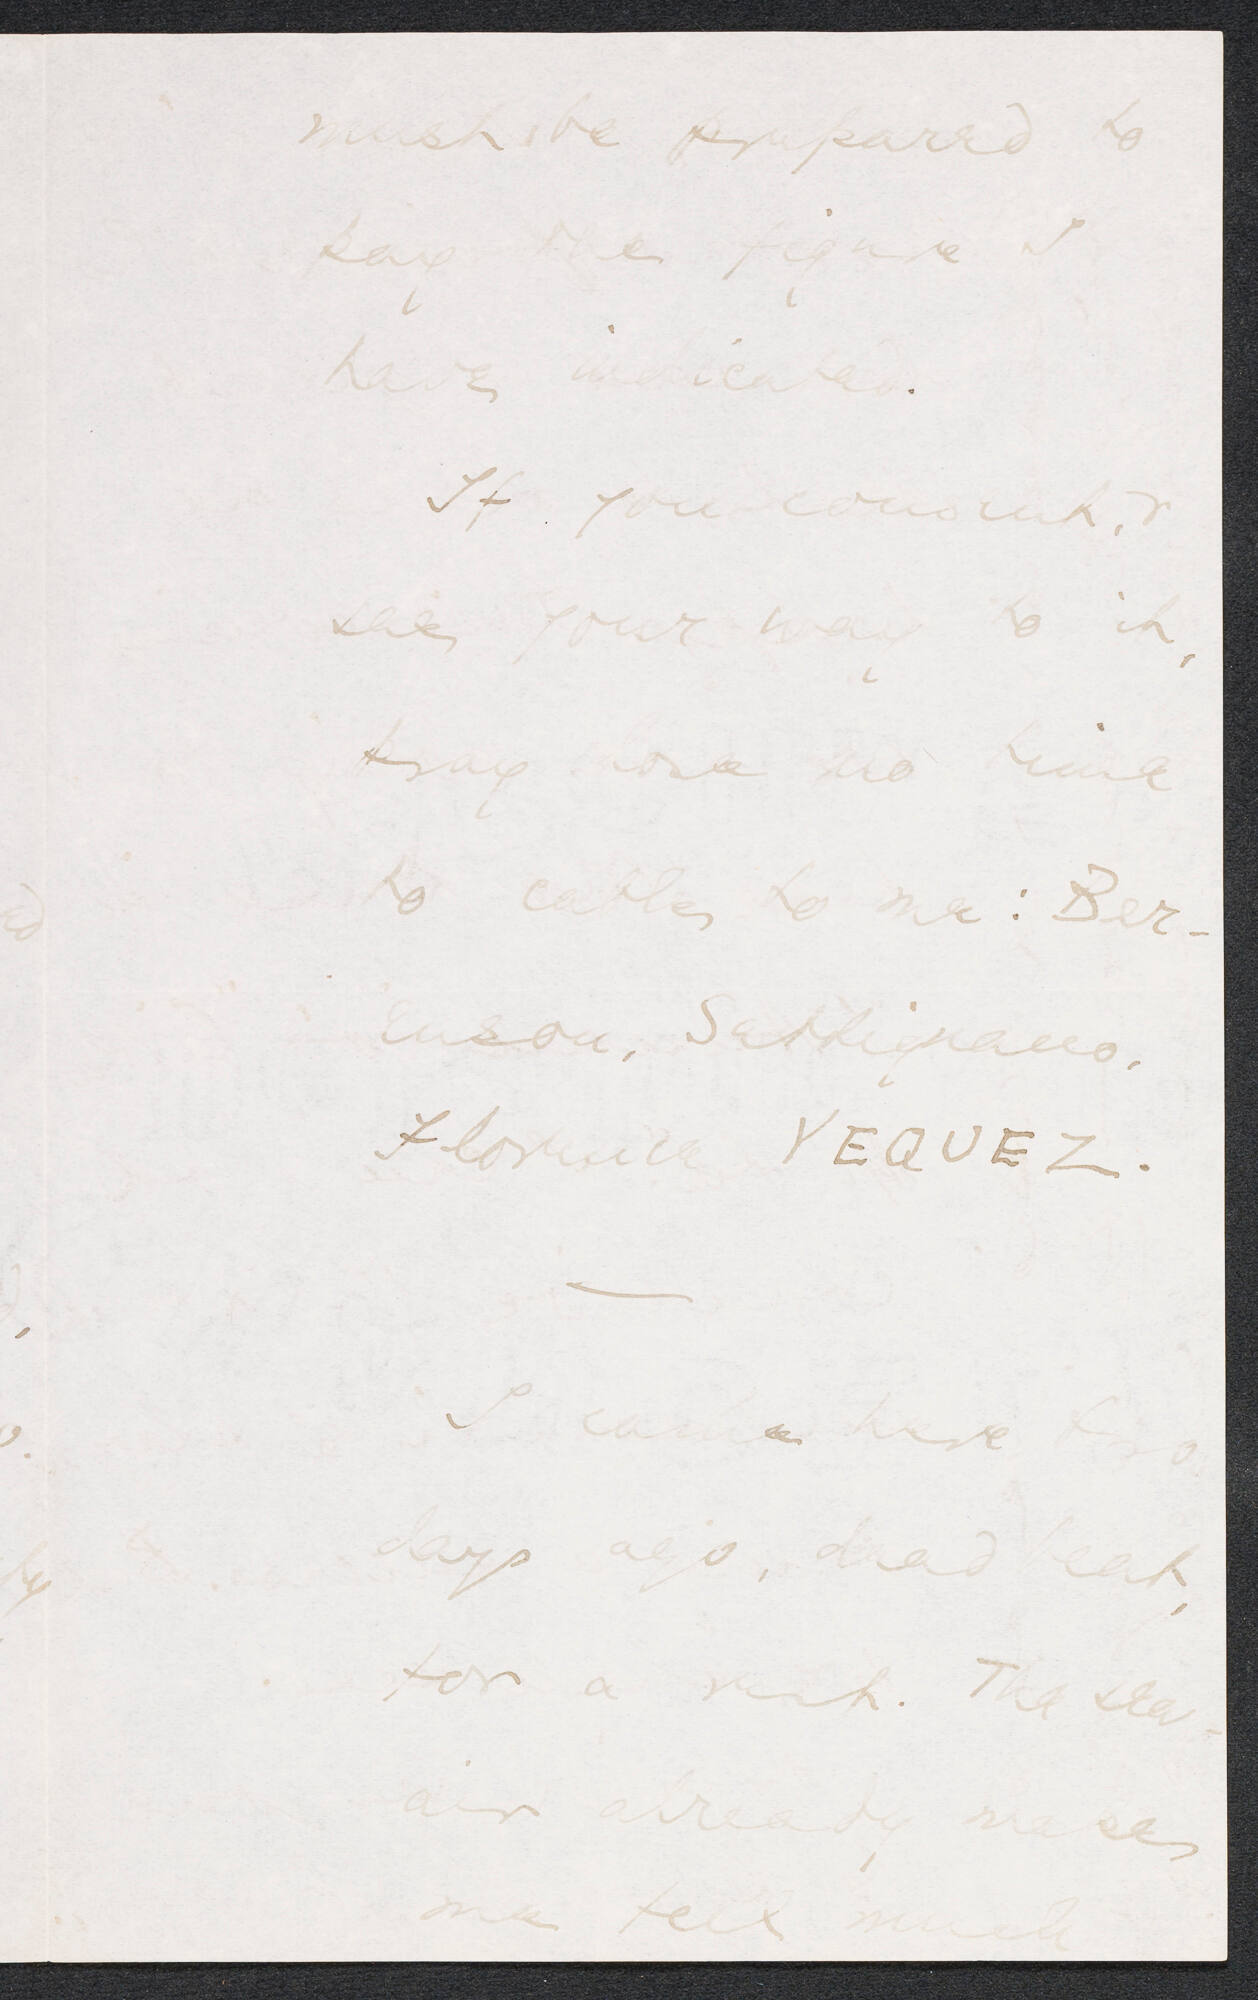 must be prepared to
pay the figure I
have indicated.
If you consent, &
see your way to it,
pray lose no time
to cable to me: Ber-
enson, Settignano,
Florence YEQUEZ.
I came here two
days ago, dead beat,
for a rest. The sea-
air already makes
me feel much